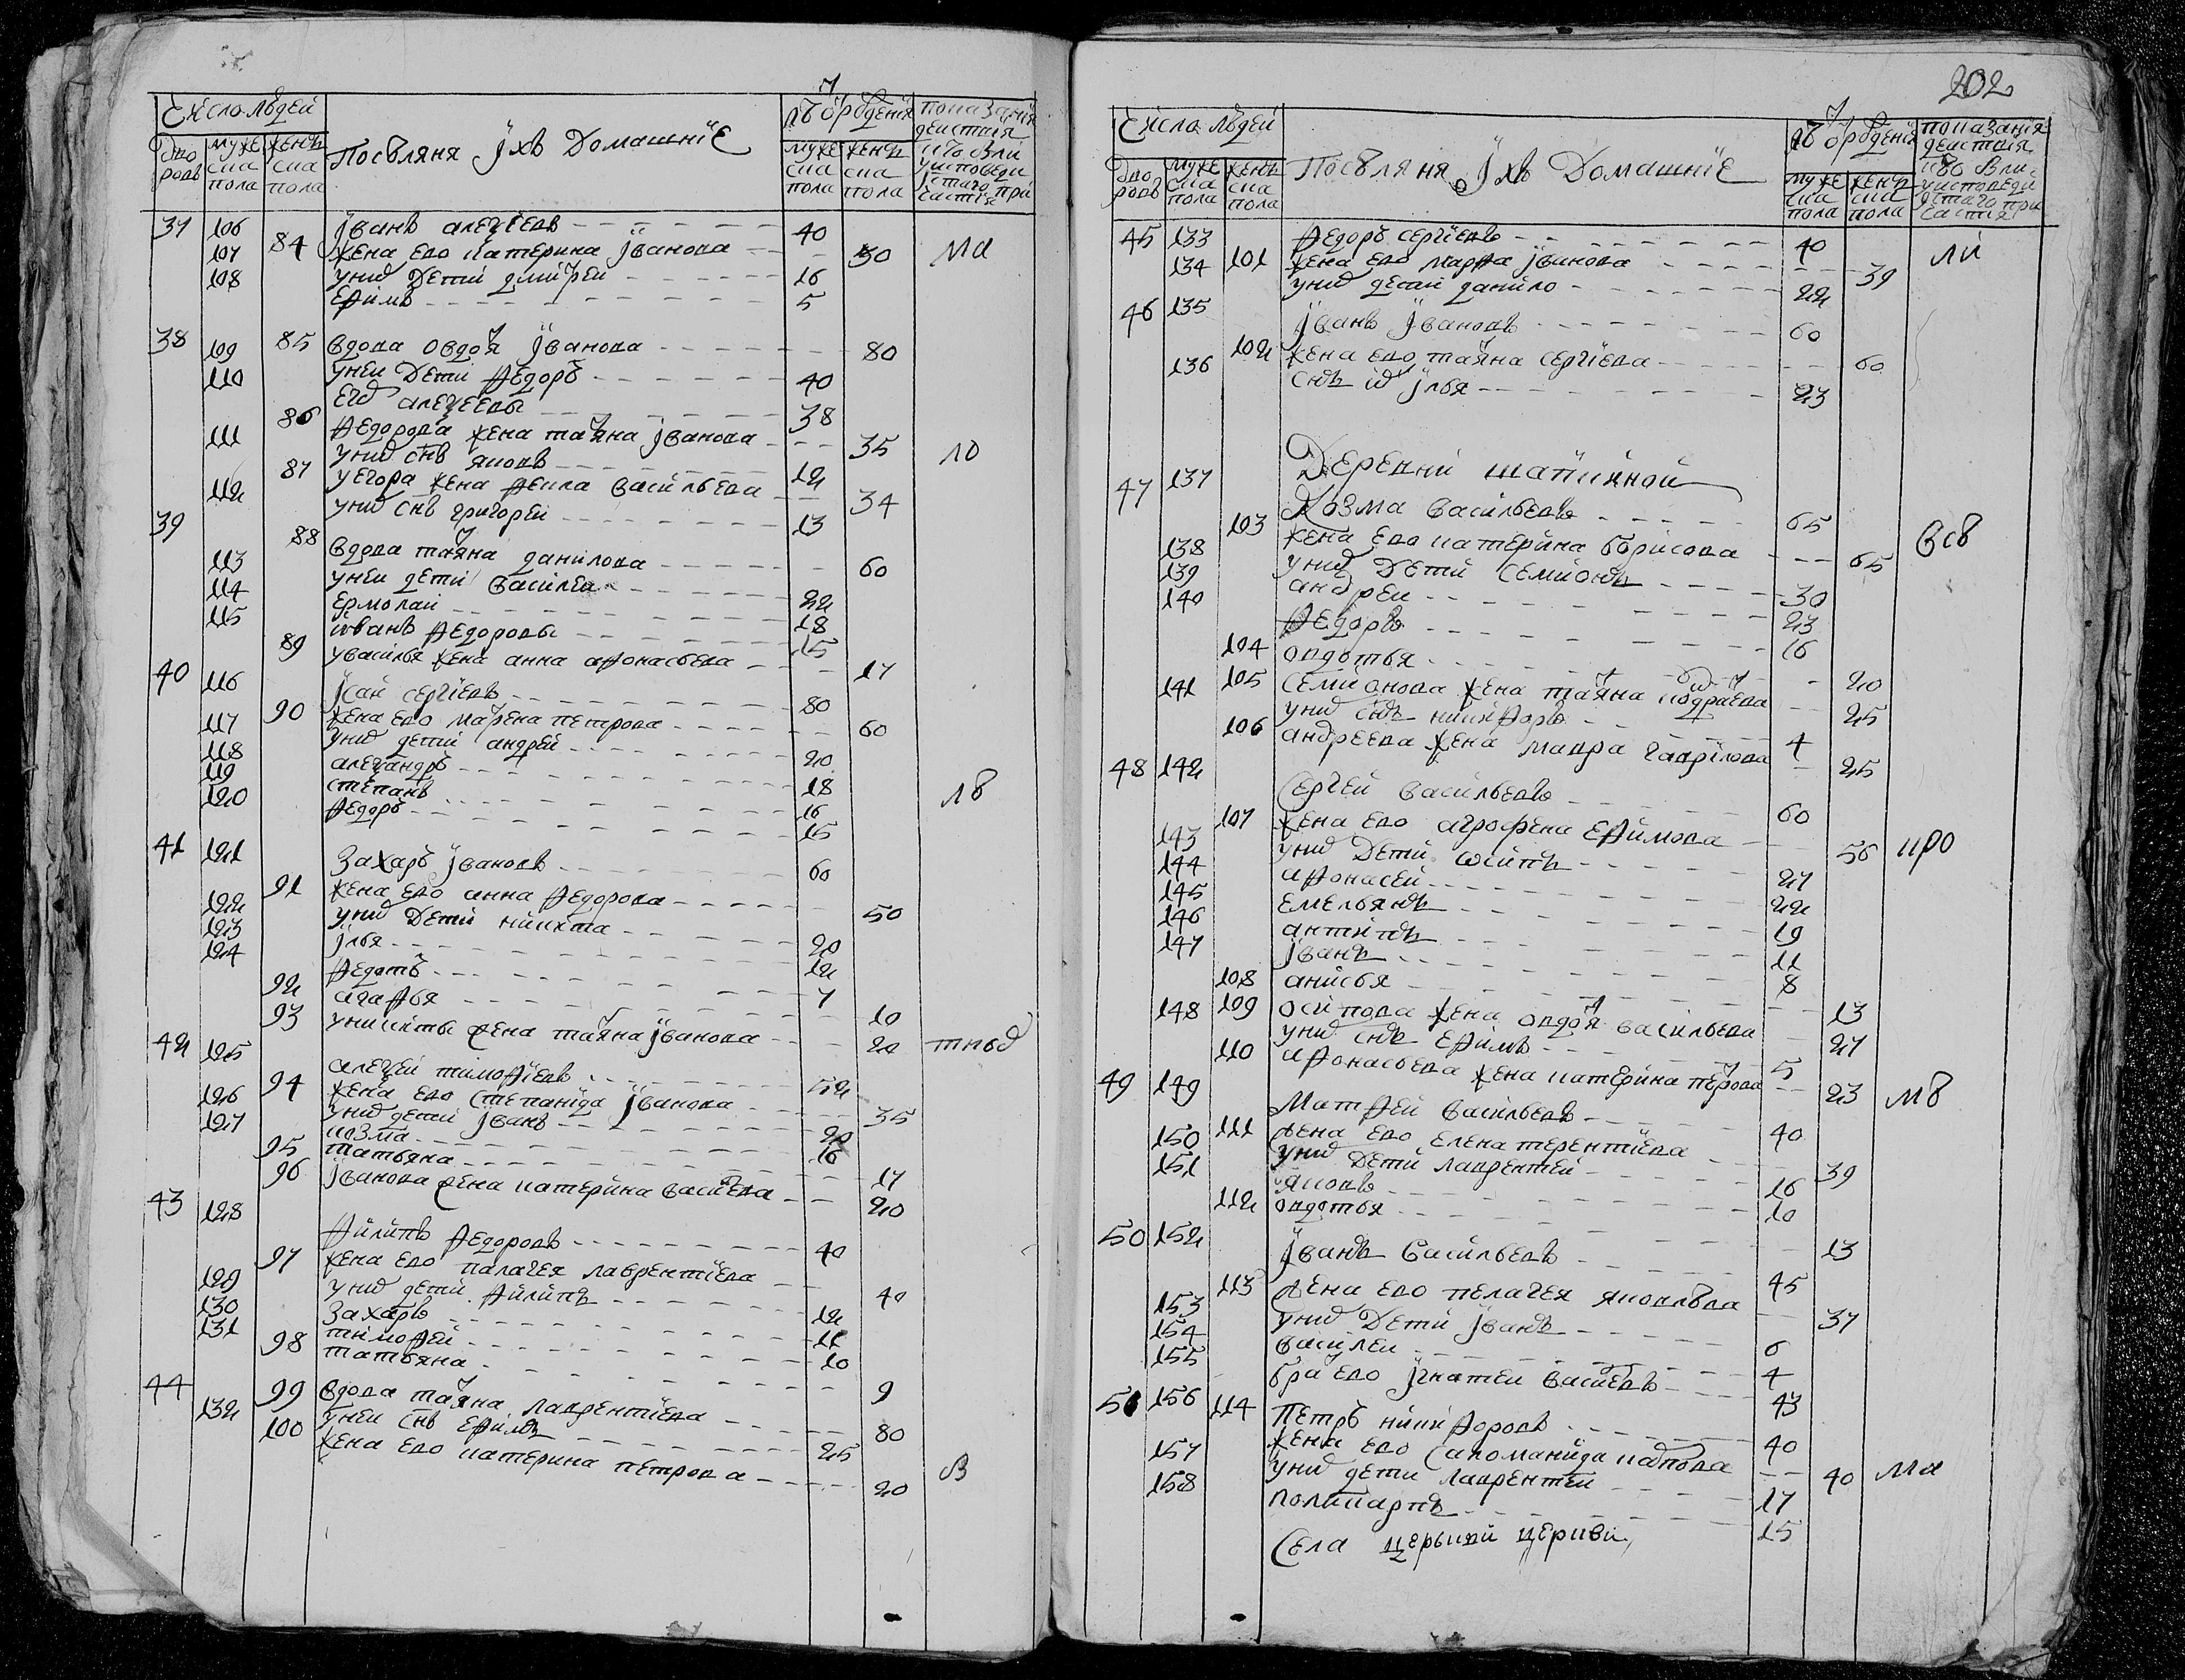 Число людей
Посѣляня и ихъ Домашние
Дворовъ
Мужеска пола
Женска пола
Мужеска пола
Женска пола
37 106 Иванъ алеѯеевъ 40
107 84 жена ево катерина Иванова 30 Ма
108 унихъ Дети дмитреи 16
Ефимъ 5
38 109 85 вдова овдотя Иванова 80
110 унеи Дети Ѳедоръ 40
Егоръ алеѯеевы 38
86 Ѳедорова жена татяна Иванова 35 ло
111 унихъ снъ яковъ 12
87 уегора жена Ѳекла васильева 34
112 унихъ снъ григореи 13
39 88 вдова татяна данилова 60
113 унеи дети василеи 22
114 Ермолаи 18
115 иванъ Ѳедоровы 15
89 увасилья жена анна аѲонасьева 17
40 116 Исаи сергиевъ 80
90 жена ево марѲена петрова 60
117 унихъ дети андреи 20
118 алеѯандръ 18
119 степанъ 16 лв
120 Ѳедоръ 15
41 121 Захаръ Ивановъ 60
91 жена ево анна Ѳедорова 50
122 унихъ Дети никита 20
123 Илья 12
124 Ѳедотъ 7
92 агаѲья 10
93 уникиты жена татяна Иванова 20
42 125 алеѯеи тимоѲиевъ 52
94 жена ево степанида Иванова 35
126 унихъ дети Иванъ 20
127 козма 16
95 татьяна 17
96 Иванова жена катерина василева 20
43 128 Ѳилипъ Ѳедоровъ 40
97 жена ево палагея лаврентиева 40
129 унихъ дети Ѳилипъ 12
130 Захаръ 11
131 тимоѲеи 10
98 татьяна 9
44 99 вдова татяна лаврентиева 80
132 унеи снъ ЕѲимъ 25
100 жена ево катерина петрова 20 в
202
Число людей
Посѣляня и ихъ Домашние
Дворовъ
Мужеска пола
Женска пола
Мужеска пола
Женска пола
45 133 Ѳедоръ сергиевъ 40
101 жена ево марѲа Иванова 39 ли
134 унихъ дети данило 22
46 135 Иванъ Ивановъ 60
102 жена ево татяна сергиева 60
136 снъ их Илья 23
Деревни шапкиной
47 137 Козма васильевъ 65
103 жена ево катерина борисова 65 всв
138 унихъ Дети Семионъ 30
139 андреи 23
140 Ѳедоръ 16
104 овдотья 20
105 Семионова жена татяна кондратева 25
141 унихъ снъ никиѲоръ 4
106 андреева жена мавра гаврилова 25
48 142 Сергеи васильевъ 60
107 жена ево агрофена ЕѲимова 56 про
143 унихъ Дети осипъ 27
144 аѲонасеи 22
145 Емельянъ 19
146 антипъ 11
147 Иванъ 8
108 анисья 13
109 осипова жена овдотя васильева 27
148 унихъ снъ ЕѲимъ 5
110 аѲонасьева жена катерина петрова 23
49 149 МатѲеи васильевъ 40 мв
111 жена ево елена терентиева 39
150 унихъ Дети лаврентеи 16
151 яковъ 10
112 овдотья 13
50 152 Иванъ васильевъ 45
113 жена ево пелагея яковлѣва 37
153 унихъ Дети Иванъ 6
154 василеи 4
155 братъ ево Игнатеи василевъ 43
51 156 Петръ никиѲоровъ 40
114 жена ево саломанида карпова 40 Ма
157 унихъ дети лаврентеи 17
158 поликарпъ 15
Села церькви